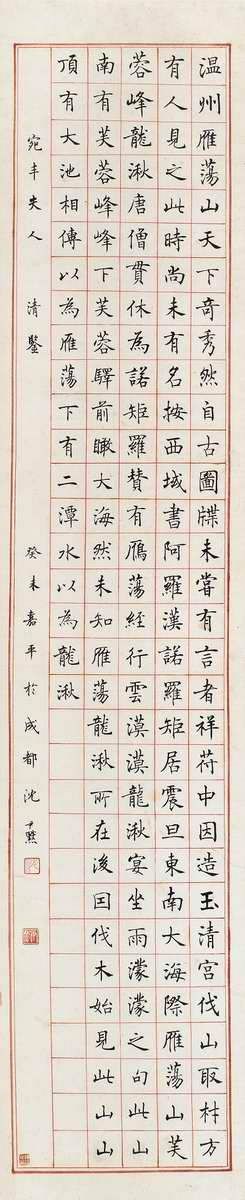 温州雁蕩山天下奇秀然自古圖牒未嘗有言者祥符中因造玉清宮伐山取材方
有人見之此時尚未有名按西域書阿羅漢諾羅矩居震旦東南大海際雁蕩山芙
蓉峰龍湫唐僧貫休為諾矩羅贊有鴈蕩經行雲漠漠龍湫宴坐雨濛濛之句此山
南有芙蓉峰峰下芙蓉驛前瞰大海然未知雁蕩龍湫所在後囙伐木始見此山山
頂有大池相傳以為雁蕩下有二潭水以為龍湫
宛丰夫人 清鑒 癸未嘉平於成都沈尹默